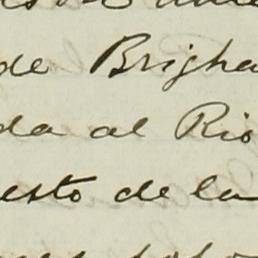 de Brigha
da al Rio
esto de la